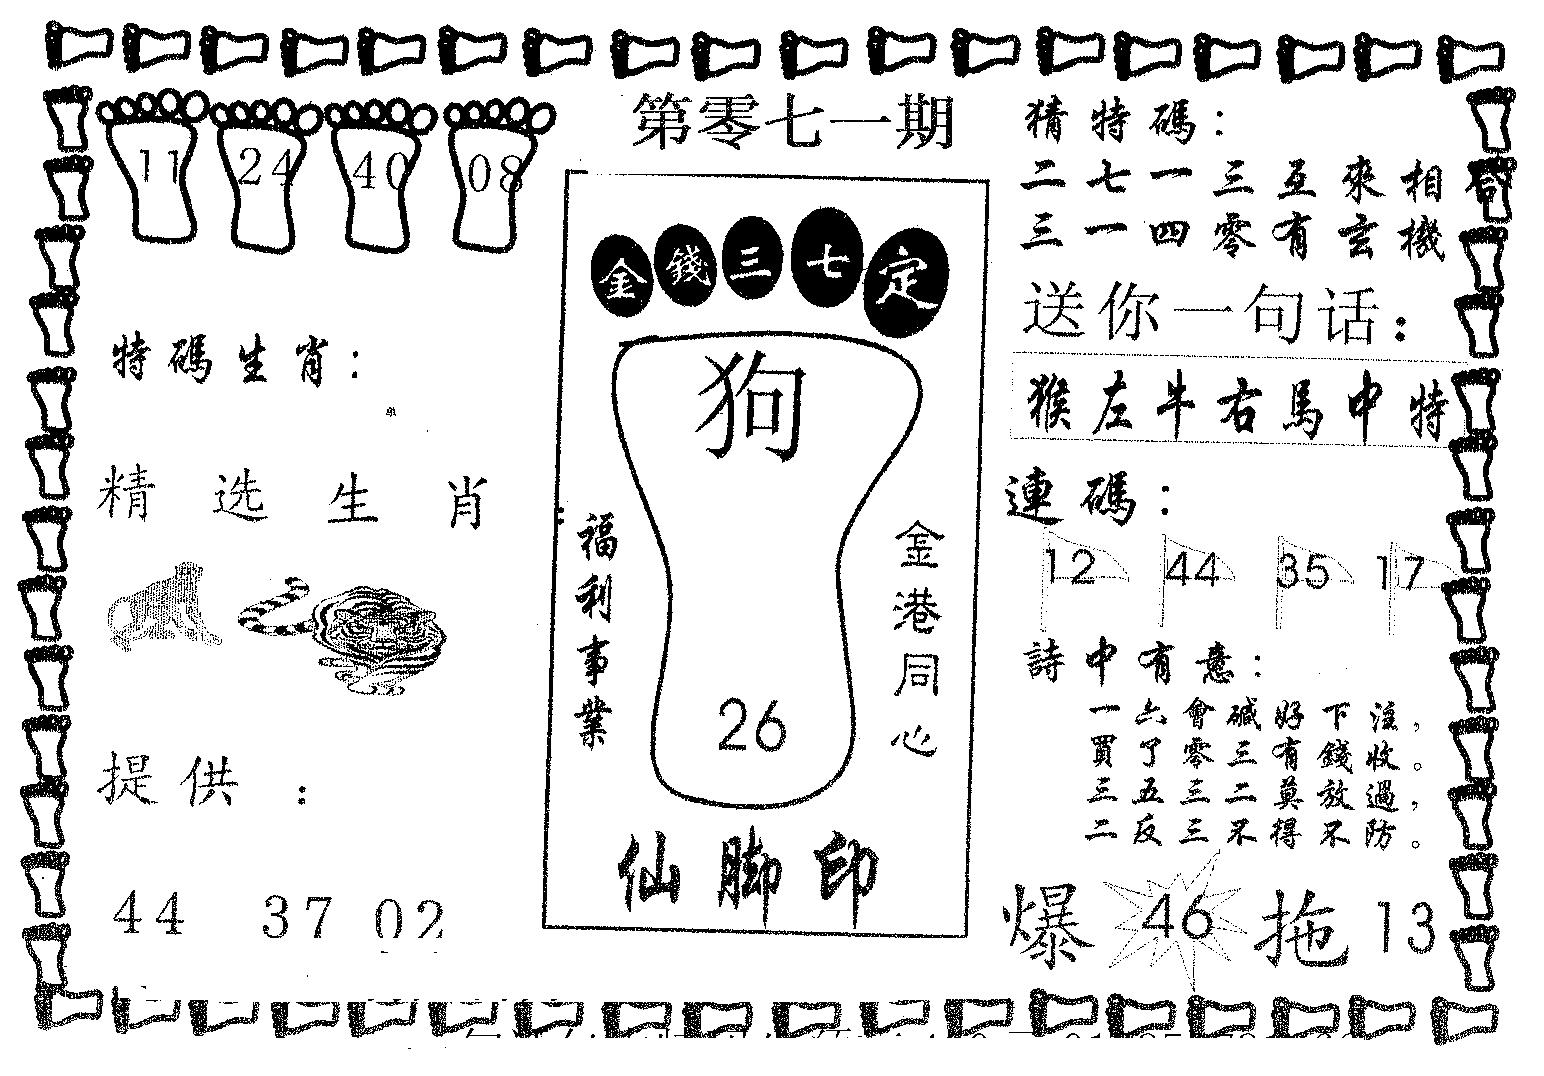 第零七一期
11 24 40 08
特碼生肖：
单
精选生肖：
提供：
44 37 02
金錢三七定
狗
福利事業
金港同心
26
仙脚印
猜特碼：
二七一三互來相
三一四零有玄機
送你一句话：
猴左牛右馬中特
連碼：
12 44 35 17
詩中有意：
一六會碱好下注，
買了零三有錢收。
三五三二莫放過，
二反三不得不防。
爆 46 拖 13